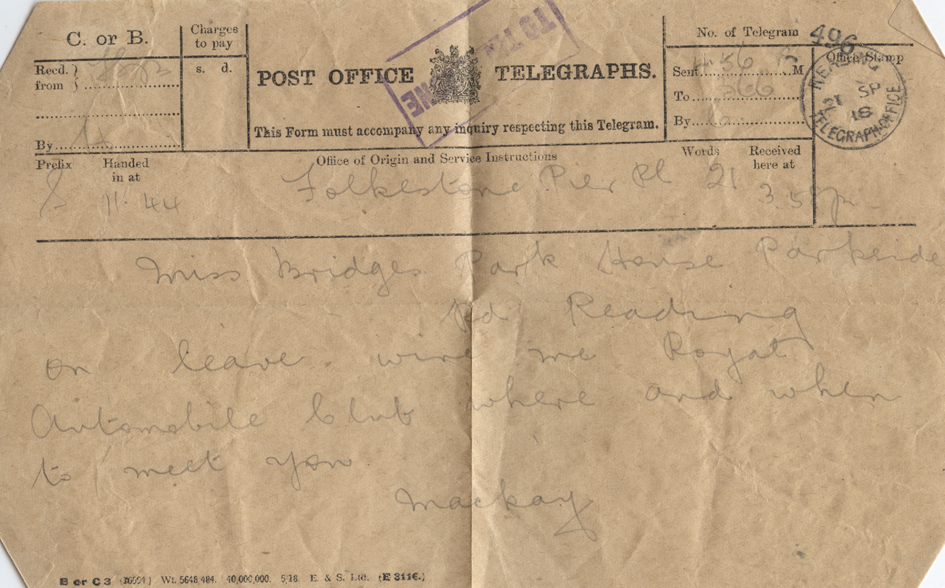 C. or B.
Charges
to pay
s. d.
Recd.
from
By
POST OFFICE TELEGRAPHS.
This Form must accompany any inquiry respecting this Telegram.
No. of Telegram 496
Office Stamp
Sent M
To
By
READING
21 SP
18
TELEGRAPH OFFICE
Prefix Handed
in at
Office of Origin and Service Instructions
Words Received
here at
S 11.44 Folkestone Pier 21 3.5
Miss Bridges Park House Parkside
Rd Reading
on leave wire me Royal
Automobile Club where and when
to meet you
Mackay
B or C 3 Wt. 5648,484. 40,000,000. 5/18 E. & S. Ltd. (E 3116.)